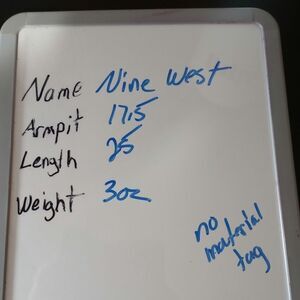 Name Nine West
Armpit 17.5
Length 25
Weight 3oz
no
material
tag